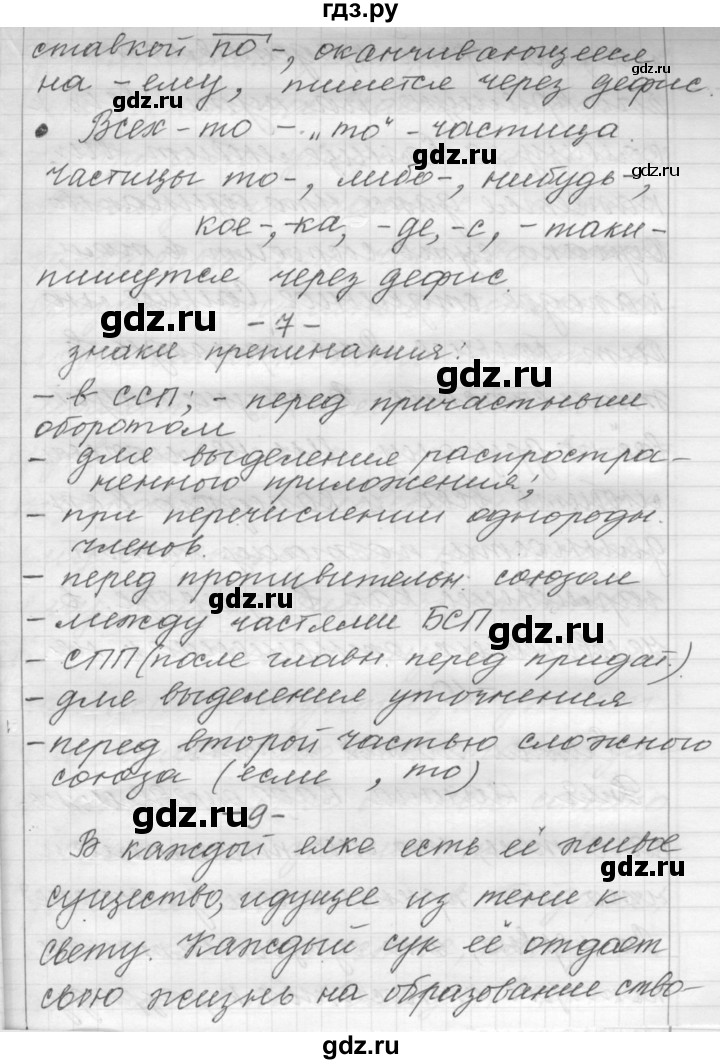 гдз.ру
ставкой ПО-, оканчивающееся
на -ему, пишется через дефис.
gdz.ru
• Всех-то - „то"-частица.
gdz.ru
частицы то-, либо-, нибудь-,
кое-, -ка, -де, -с, -таки-
пишутся через дефис.
gdz.ru
-7-
знаки препинания:
gdz.ru
- в ССП; - перед причастным
оборотом
- для выделения распростра-
ненного приложения;
- при перечислении однородн.
членов.
- перед противительн. союзом
gdz.ru
- между частями БСП
gdz.ru
- СПП (после главн. перед придат.)
- для выделения уточнения
- перед второй частью сложного
союза (если , то)
gdz.ru
9-
В каждой елке есть её живое
gdz.ru
существо, идущее из тени к
свету. Каждый сук её отдает
свою жизнь на образование ство-
gdz.ru